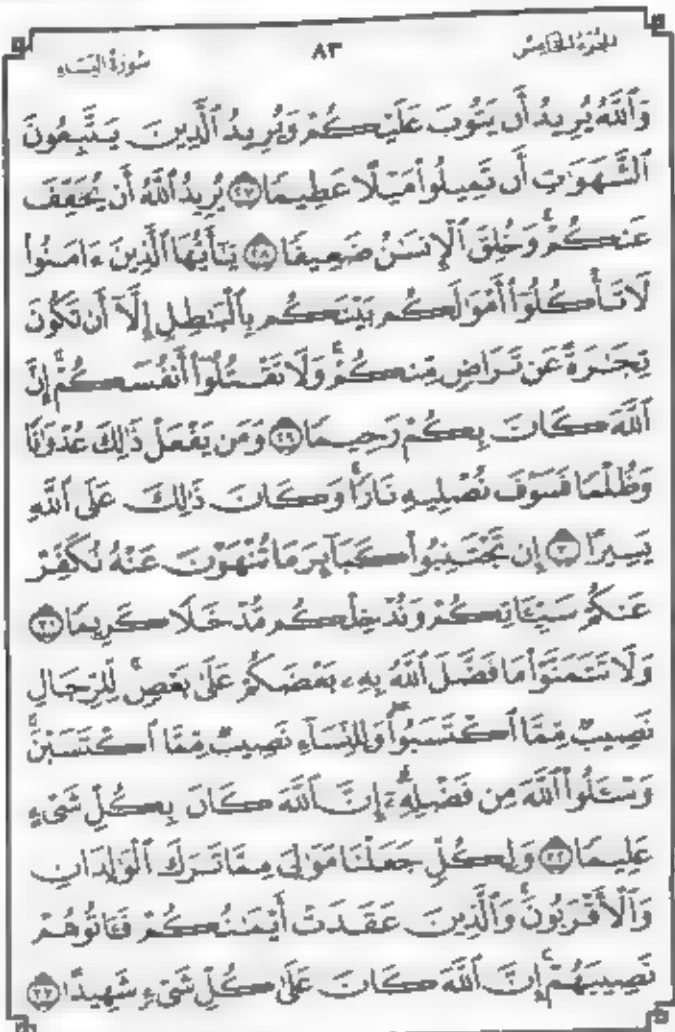 الجزء الخامس ٨٣ سورة النساء
وَٱللَّهُ يُرِيدُ أَن يَتُوبَ عَلَيْكُمْ وَيُرِيدُ ٱلَّذِينَ يَتَّبِعُونَ
ٱلشَّهَوَٰتِ أَن تَمِيلُوا۟ مَيْلًا عَظِيمًا ٢٧ يُرِيدُ ٱللَّهُ أَن يُخَفِّفَ
عَنكُمْ ۚ وَخُلِقَ ٱلْإِنسَٰنُ ضَعِيفًا ٢٨ يَٰٓأَيُّهَا ٱلَّذِينَ ءَامَنُوا۟
لَا تَأْكُلُوٓا۟ أَمْوَٰلَكُم بَيْنَكُم بِٱلْبَٰطِلِ إِلَّآ أَن تَكُونَ
تِجَٰرَةً عَن تَرَاضٍ مِّنكُمْ ۚ وَلَا تَقْتُلُوٓا۟ أَنفُسَكُمْ ۚ إِنَّ
ٱللَّهَ كَانَ بِكُمْ رَحِيمًا ٢٩ وَمَن يَفْعَلْ ذَٰلِكَ عُدْوَٰنًا
وَظُلْمًا فَسَوْفَ نُصْلِيهِ نَارًا ۚ وَكَانَ ذَٰلِكَ عَلَى ٱللَّهِ
يَسِيرًا ٣٠ إِن تَجْتَنِبُوا۟ كَبَآئِرَ مَا تُنْهَوْنَ عَنْهُ نُكَفِّرْ
عَنكُمْ سَيِّـَٔاتِكُمْ وَنُدْخِلْكُم مُّدْخَلًا كَرِيمًا ٣١
وَلَا تَتَمَنَّوْا۟ مَا فَضَّلَ ٱللَّهُ بِهِۦ بَعْضَكُمْ عَلَىٰ بَعْضٍ ۚ لِّلرِّجَالِ
نَصِيبٌ مِّمَّا ٱكْتَسَبُوا۟ ۖ وَلِلنِّسَآءِ نَصِيبٌ مِّمَّا ٱكْتَسَبْنَ ۚ
وَسْـَٔلُوا۟ ٱللَّهَ مِن فَضْلِهِۦٓ ۗ إِنَّ ٱللَّهَ كَانَ بِكُلِّ شَىْءٍ
عَلِيمًا ٣٢ وَلِكُلٍّ جَعَلْنَا مَوَٰلِىَ مِمَّا تَرَكَ ٱلْوَٰلِدَانِ
وَٱلْأَقْرَبُونَ ۚ وَٱلَّذِينَ عَقَدَتْ أَيْمَٰنُكُمْ فَـَٔاتُوهُمْ
نَصِيبَهُمْ ۚ إِنَّ ٱللَّهَ كَانَ عَلَىٰ كُلِّ شَىْءٍ شَهِيدًا ٣٣